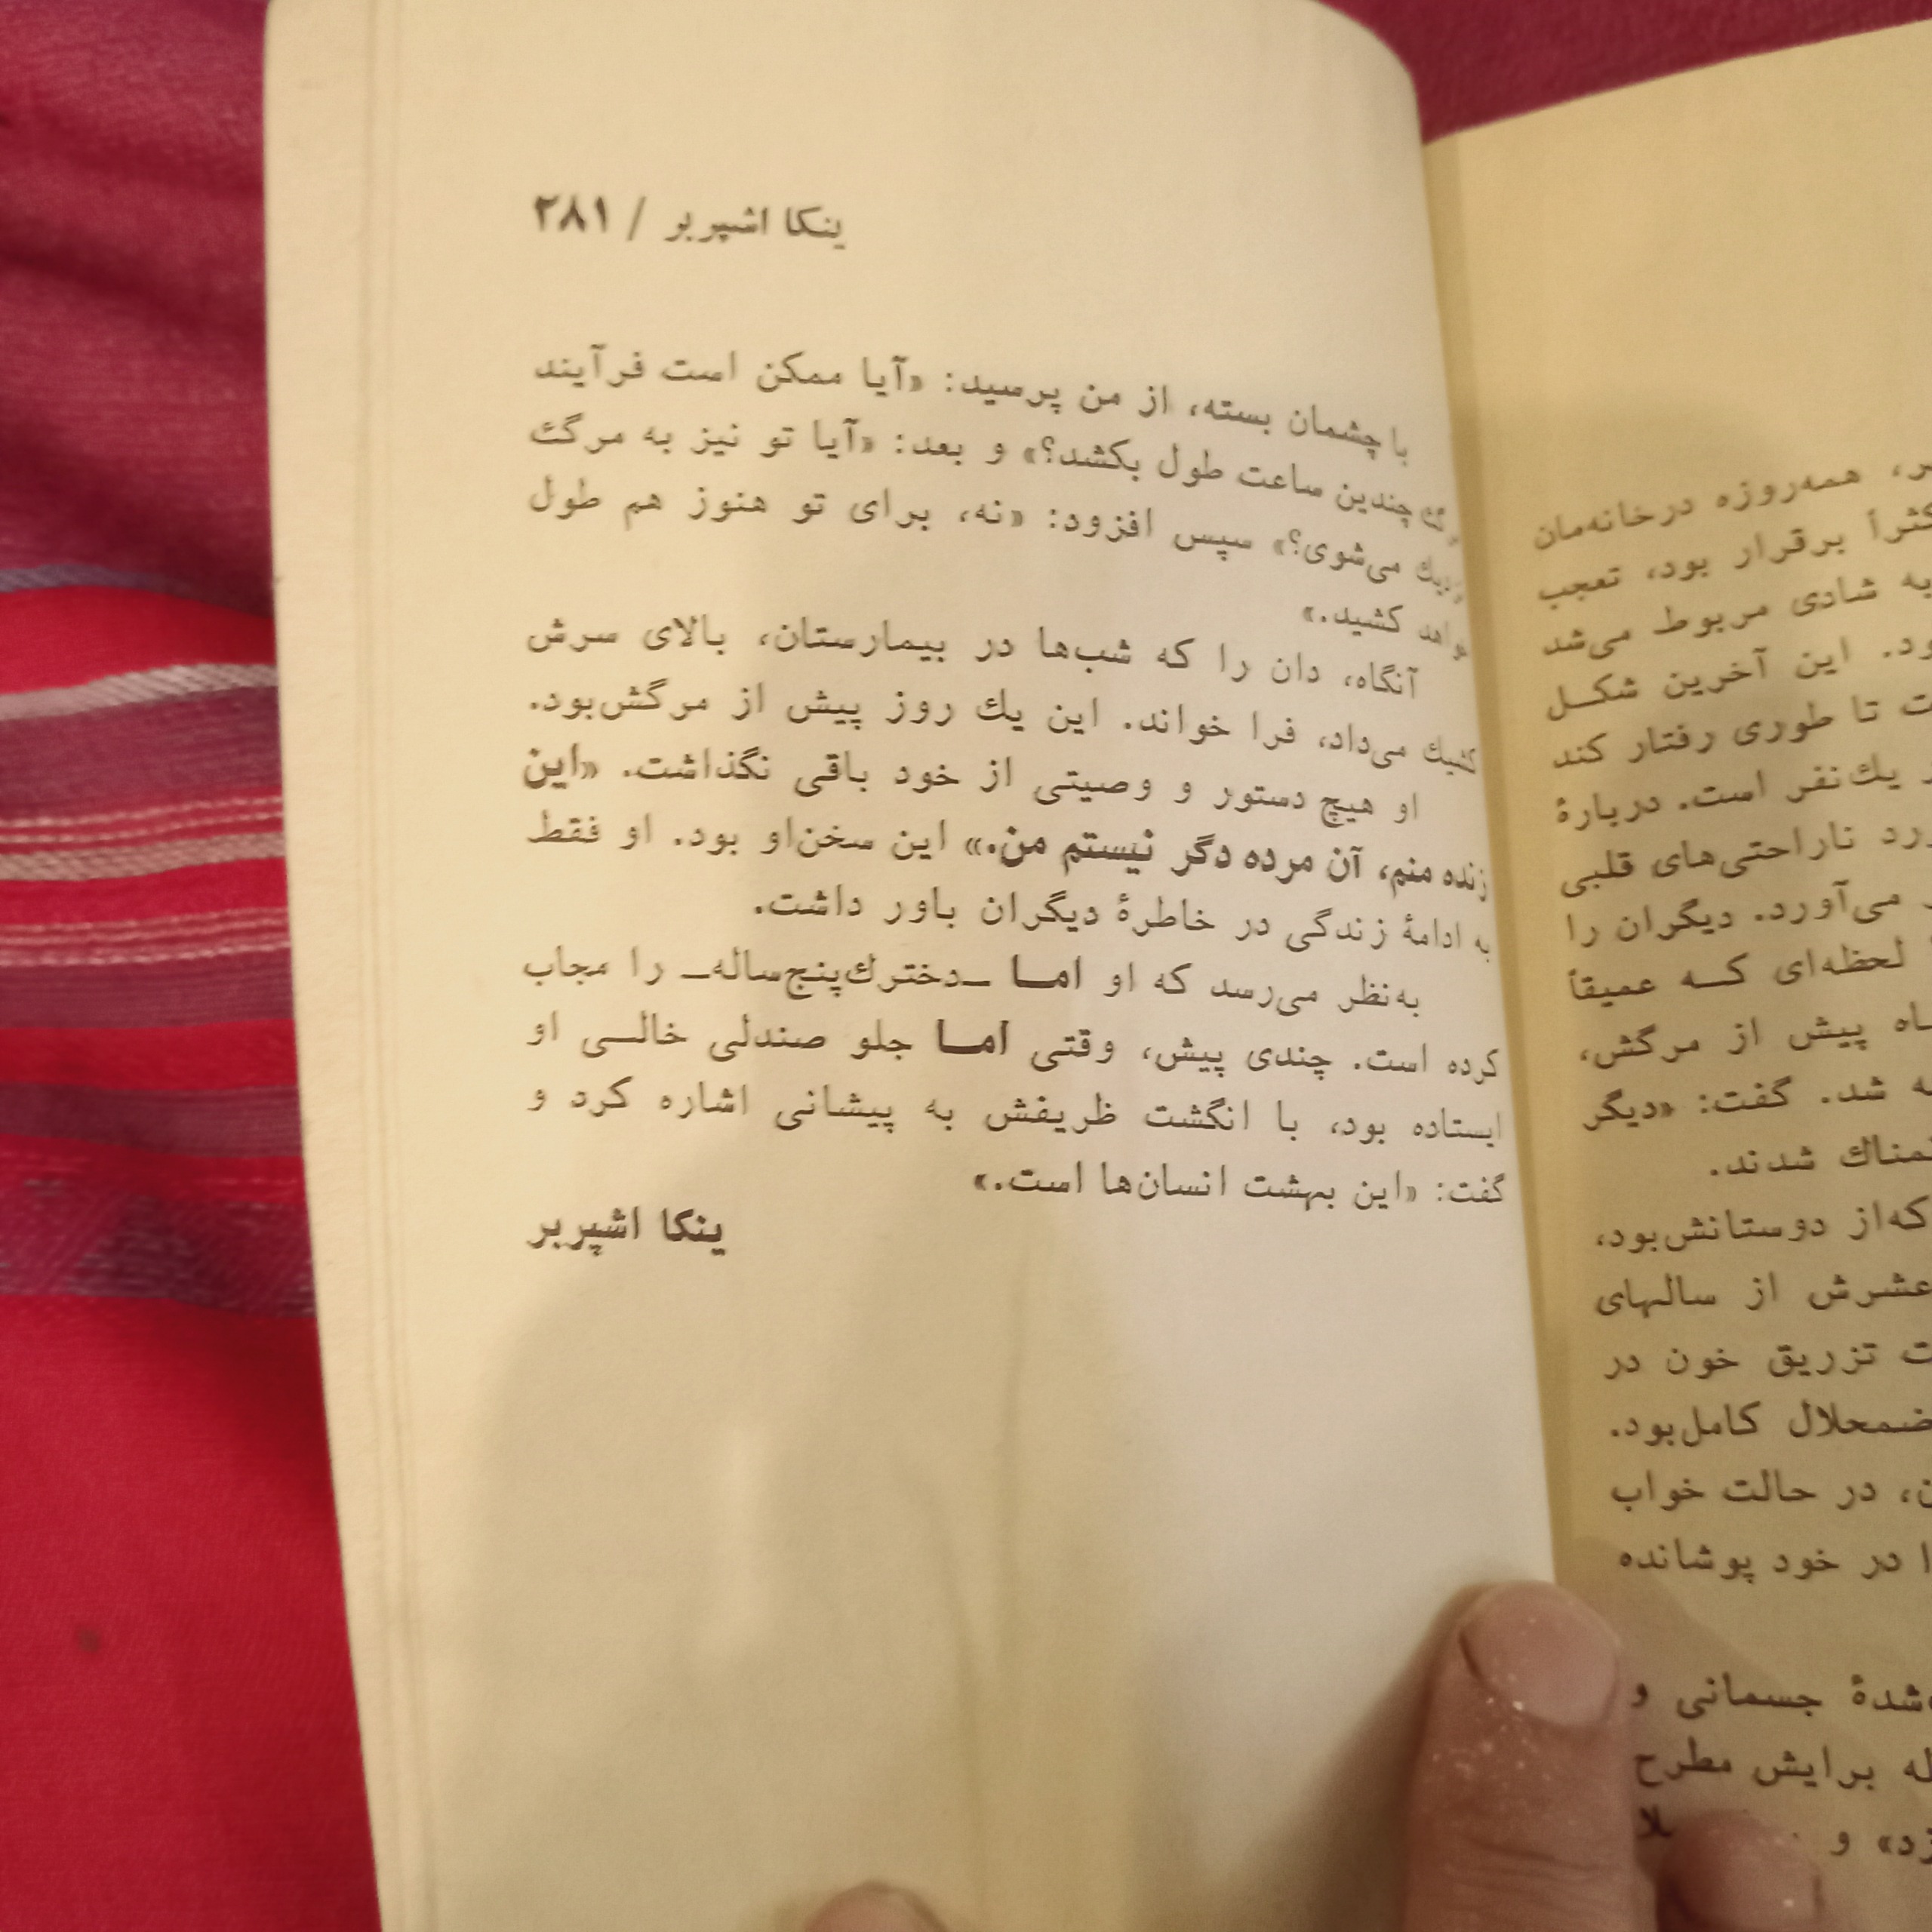 ینکا اشپربر / ۲۸۱
با چشمان بسته، از من پرسید: «آیا ممکن است فرآیند
چندین ساعت طول بکشد؟» و بعد: «آیا تو نیز به مرگ
می‌شوی؟» سپس افزود: «نه، برای تو هنوز هم طول
کشید.»
آنگاه، دان را که شب‌ها در بیمارستان، بالای سرش
کشیك می‌داد، فرا خواند. این یك روز پیش از مرگش‌بود.
او هیچ دستور و وصیتی از خود باقی نگذاشت. «این
زنده منم، آن مرده دگر نیستم من.» این سخن‌او بود. او فقط
به ادامهٔ زندگی در خاطرهٔ دیگران باور داشت.
به‌نظر می‌رسد که او اما ـ‌دخترك‌پنج‌ساله‌ـ را مجاب
کرده است. چندی پیش، وقتی اما جلو صندلی خالی او
ایستاده بود، با انگشت ظریفش به پیشانی اشاره کرد و
گفت: «این بهشت انسان‌ها است.»
ینکا اشپربر
همه‌روزه درخانه‌مان
برقرار بود، تعجب
شادی مربوط می‌شد
این آخرین شکل
تا طوری رفتار کند
یك‌نفر است. دربارهٔ
ناراحتی‌های قلبی
می‌آورد. دیگران را
لحظه‌ای که عمیقاً
پیش از مرگش،
شد. گفت: «دیگر
شدند.
که‌از دوستانش‌بود،
از سالهای
تزریق خون در
کامل‌بود.
در حالت خواب
در خود پوشانده
جسمانی و
برایش مطرح
و